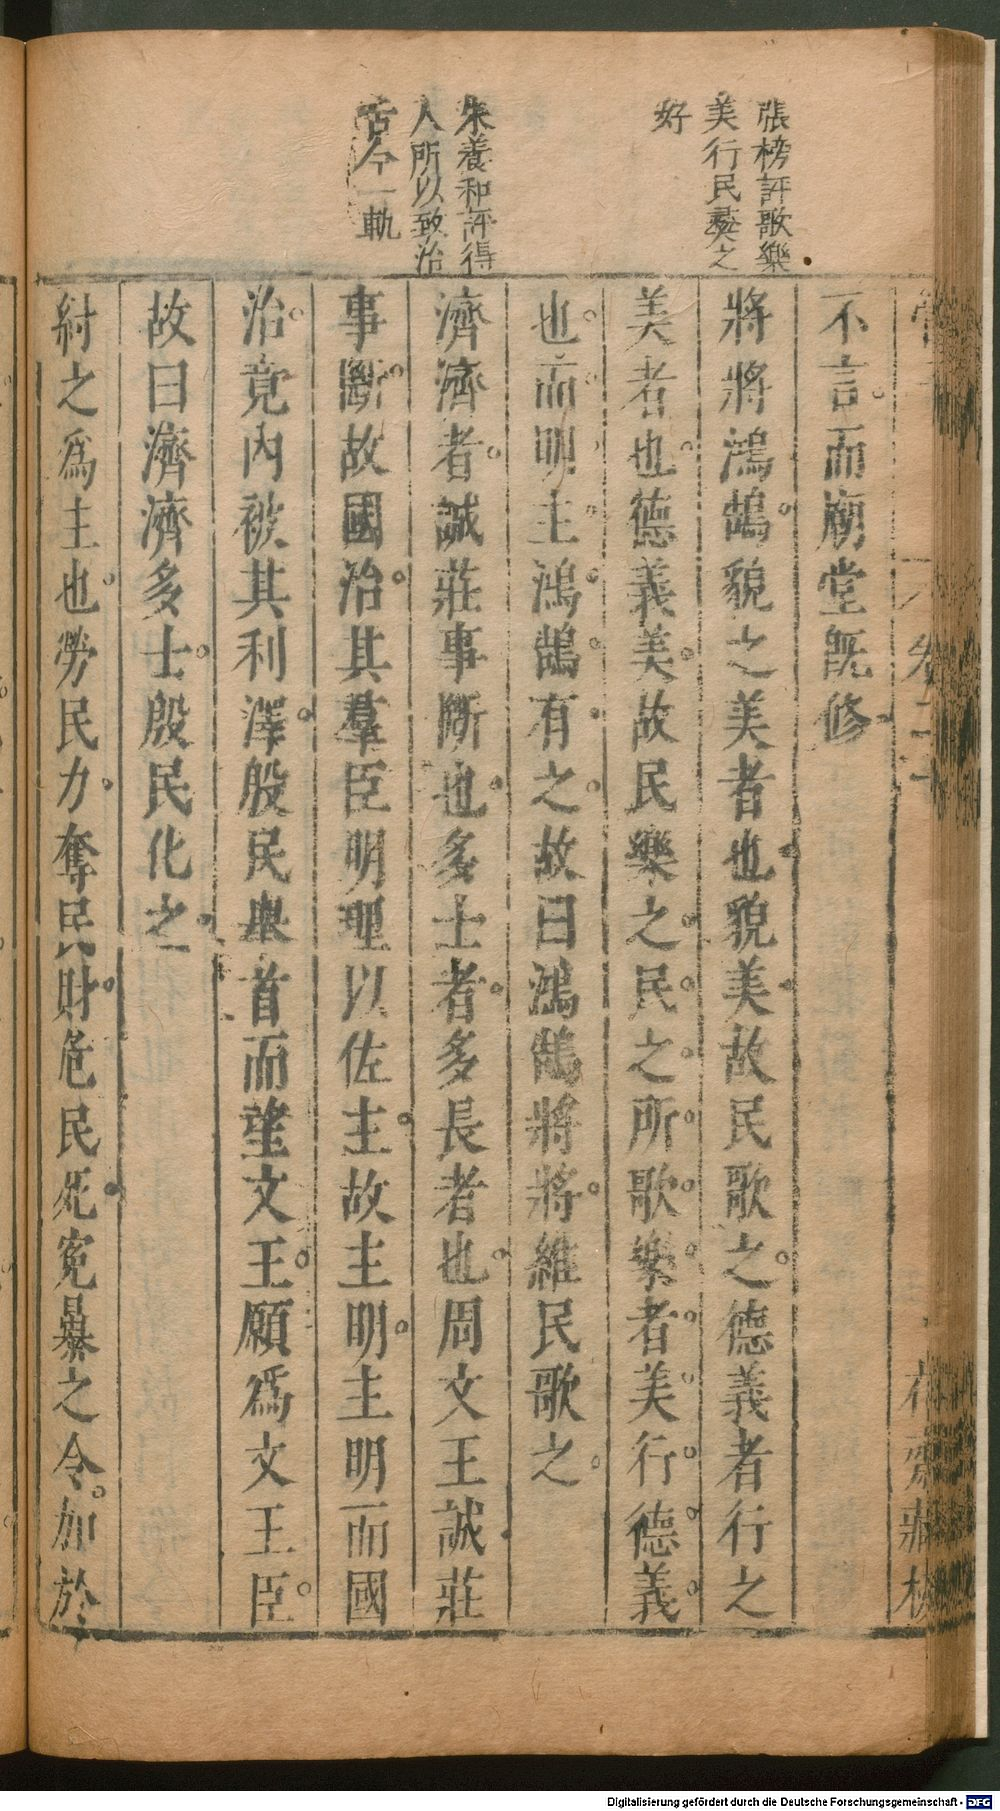 張榜評歌樂
美行民彝之
好
朱養和評得
人所以致治
古今一軌
卷二十
花齋藏板
不言而廟堂旣修
將將鴻鵠貌之美者也貌美故民歌之德義者行之
美者也德義美故民樂之民之所歌樂者美行德義
也而明主鴻鵠有之故曰鴻鵠將將維民歌之
濟濟者誠莊事斷也多士者多長者也周文王誠莊
事斷故國治其羣臣明理以佐主故主明主明而國
治竟內被其利澤殷民舉首而望文王願爲文王臣
故曰濟濟多士殷民化之
紂之爲主也勞民力奪民財危民死冤暴之令加於
Digitalisierung gefördert durch die Deutsche Forschungsgemeinschaft - DFG